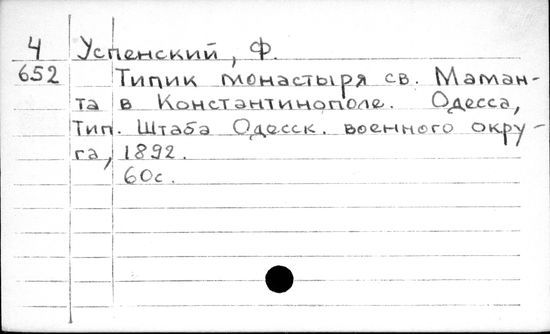 4 Успенский, Ф.
652 Типик монастыря св. Маман-
та в Константинополе. Одесса,
Тип. Штаба Одесск. военного окру-
га, 1892.
60с.